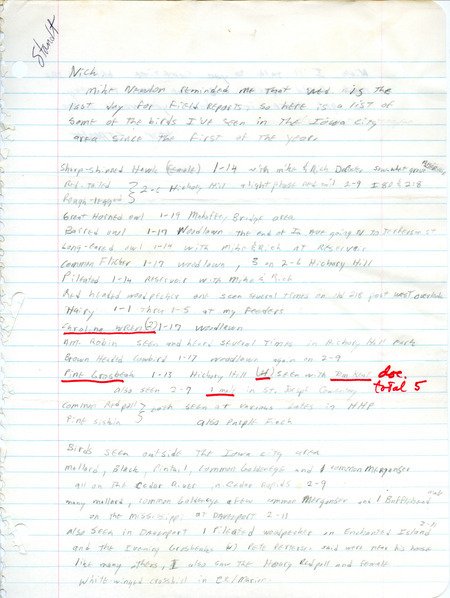 Nick
Mike Newlon reminded me that wed is the
last day for field reports, so here is a list of
some of the birds I've seen in the Iowa City
area since the first of the year.
Sharp-shinned Hawk (female) 1-14 with mike & Rich
Red-Tailed
Rough-legged } 2-6 Hickory Hill a light phase red tail 2-9 I 80 & 218
Great Horned owl 1-19 Mehaffey Bridge area
Barred owl 1-17 Woodlawn the end of Iowa going to
Long-eared owl 1-14 with Mike & Rich at Reservoir
Common Flicker 1-17 woodlawn, 3 on 2-6 Hickory Hill
Pileated 1-14 Reservoir with Mike & Rich
Red headed woodpecker one seen several times on old 218 past west overlook
Hairy 1-1 thru 1-5 at my feeders
Carolina wren (2) 1-17 woodlawn
Am. Robin seen and heard several times in Hickory Hill Park
Brown Headed Cowbird 1-17 woodlawn again on 2-9
Pine Grosbeak 1-13 Hickory Hill (4) seen with Tom Kent doc.
also seen 2-9 1 male in St. Joseph Cemetary total 5
Common Redpoll
Pine siskin } each seen at various dates in HHP
also Purple Finch
Birds seen outside the Iowa City area
mallard, Black, Pintail, Common Goldeneye and 1 common Merganser
all on the Cedar River in Cedar Rapids 2-9
many mallard, common Goldeneye a few common Merganser and 1 Bufflehead
on the Mississippi at Davenport 2-11
Also seen in Davenport 1 Pileated woodpecker on Enchanted Island 2-11
and the Evening Grosbeaks by Pete Petersen said were near his house
like many others, I also saw the Hoary Redpoll and female
white-winged crossbill in